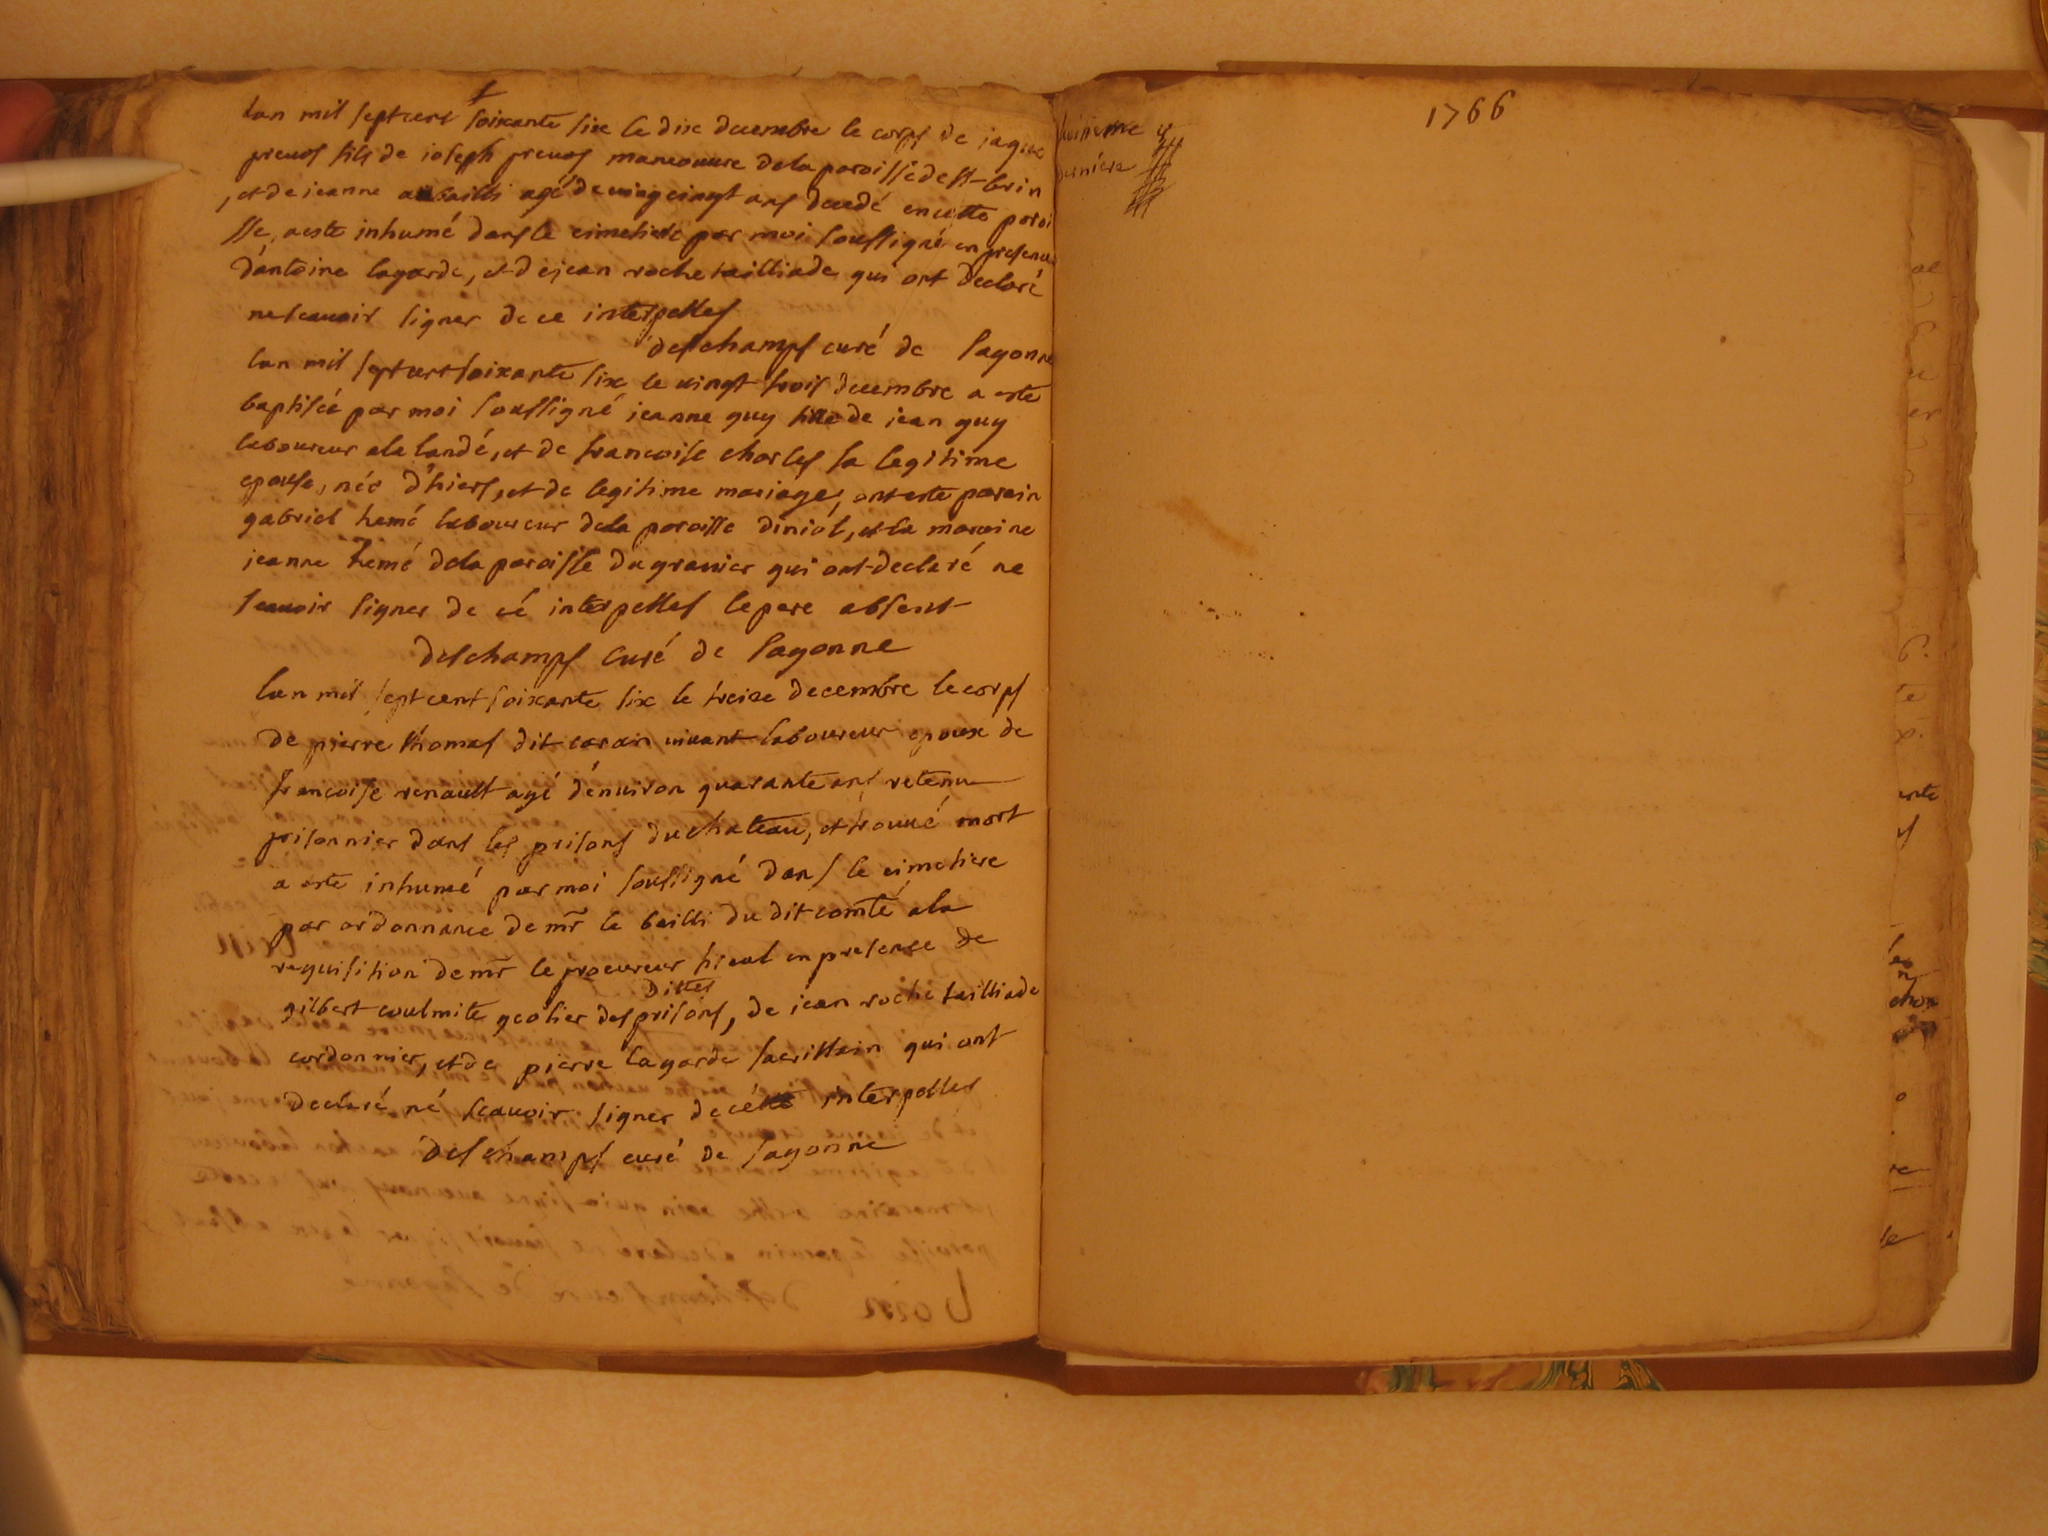 lan mil sept cent soixante six le dix decembre le corps de iaques
preuos fils de ioseph preuos maneouure de la paroisse de st-brin
, et de jeanne aubailli agé de uing cinqt ans decedé en cette paroi
sse, a esté inhumé dans le cimetiere par moi soussigné en presence
d'antoine lagarde, et de jean roche tailliade qui ont declaré
ne scauoir signer de ce interpelles
deschamps curé de sagonne
lan mil sept cent soixante six le uingt trois decembre a esté
baptiseé par moi soussigné jeanne guy fille de jean guy
laboureur a la landé, et de francoise charles sa legitime
epouse, née d'hiers, et de legitime mariage, ont esté parain
gabriel hemé laboureur de la paroisse diniol, et la maraine
jeanne hemé de la paroisse du grauier qui ont declaré ne
scauoir signer de cé interpelles le pere absent
deschamps curé de sagonne
lan mil sept cent soixante six le treize decembre le corps
de pierre thomas dit carain uiuant laboureur epoux de
francoise renault agé d'enuiron quarante ans retenu
prisonnier dans les prisons du chateau, et trouué mort
a esté inhumé par moi soussigné dans le cimetiere
par ordonnance de mr le bailli du dit comté a la
requisition de mr le procureur fiscal en presence de
gilbert coulmite geolier des dittes prisons, de jean roche tailliade
cordonnier, et de pierre lagarde sacristain qui ont
declaré né scauoir signer de cé interpelles
deschamps curé de sagonne
1766
huitieme et
derniere